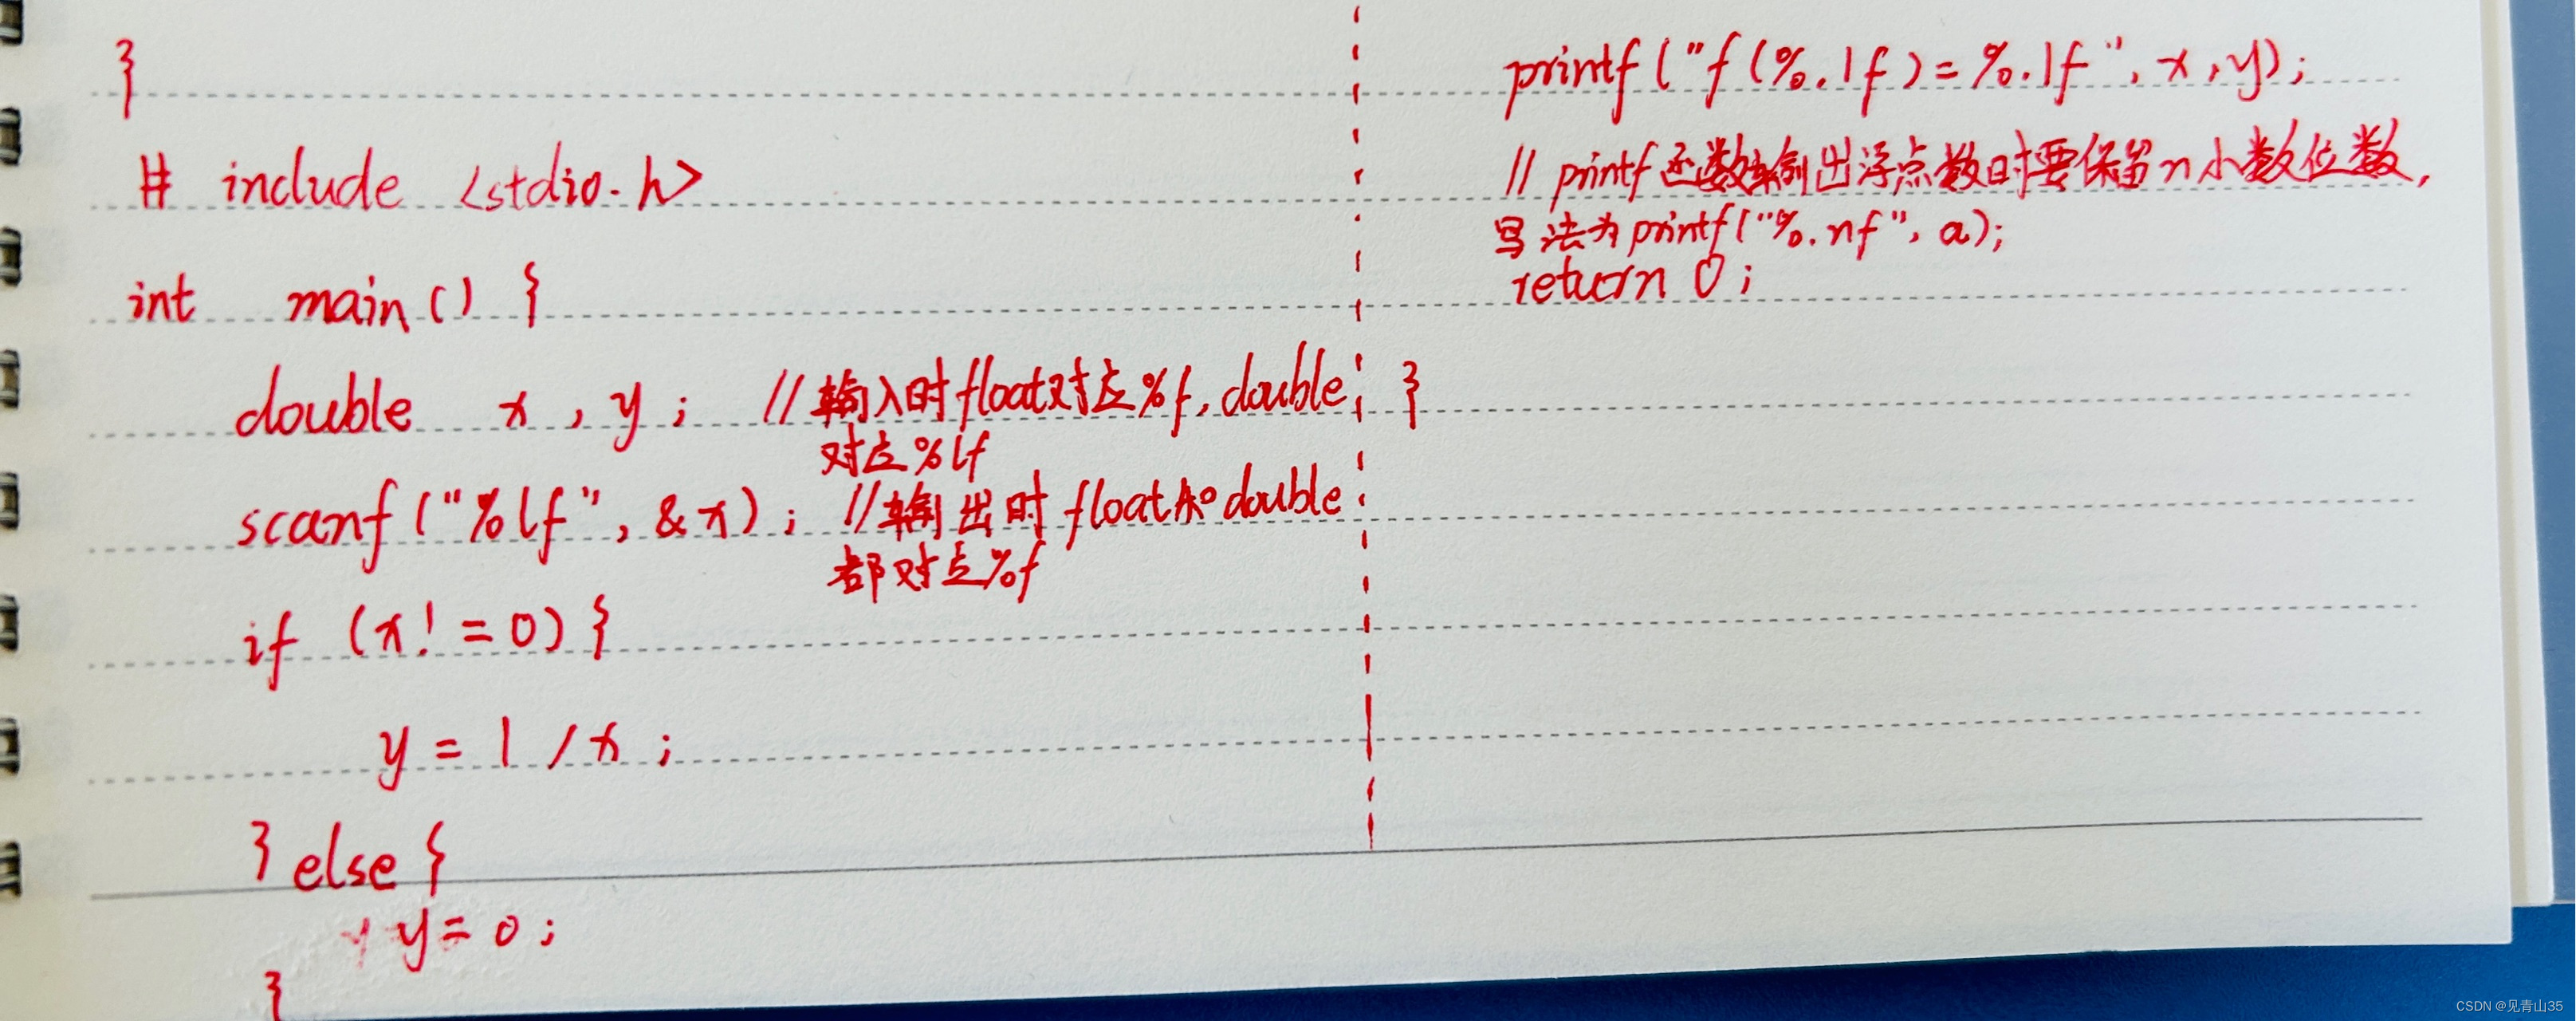 }
# include <stdio.h>
int main() {
double x , y ; //输入时float对应%f, double
对应%lf
scanf("%lf", &x) ; //输出时float和double
都对应%f
if (x! = 0) {
y = 1 / x ;
} else {
y = 0 ;
}
printf("f(%.1f)=%.1f", x , y);
// printf函数输出浮点数时要保留n小数位数,
写法为printf("%.nf", a);
return 0 ;
}
CSDN @见青山35